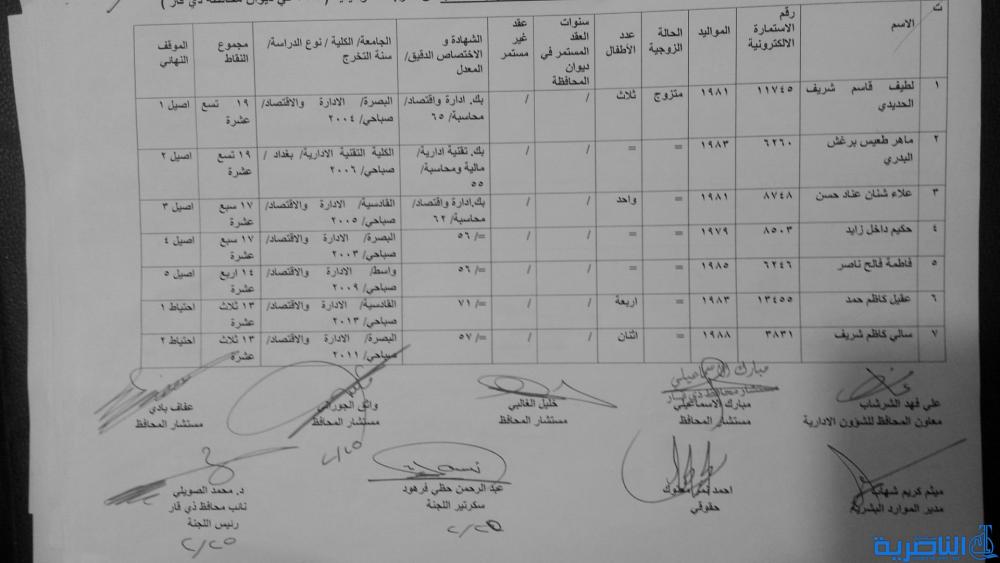 ديوان محافظة ذي قار )
ت | الاسم | رقم الاستمارة الالكترونية | المواليد | الحالة الزوجية | عدد الأطفال | سنوات العقد المستمر في ديوان المحافظة | عقد غير مستمر | الشهادة و الاختصاص الدقيق/ المعدل | الجامعة/ الكلية / نوع الدراسة/ سنة التخرج | مجموع النقاط | الموقف النهائي
١ | لطيف قاسم شريف الحديدي | ١١٧٤٥ | ١٩٨١ | متزوج | ثلاث | / | / | بك. ادارة واقتصاد/ محاسبة/ ٦٥ | البصرة/ الادارة والاقتصاد/ صباحي/ ٢٠٠٤ | ١٩ تسع عشرة | اصيل ١
٢ | ماهر طعيس برغش البدري | ٦٢٦٠ | ١٩٨٣ | = | = | / | / | بك. تقنية ادارية/ مالية ومحاسبة/ ٥٥ | الكلية التقنية الادارية/ بغداد / صباحي/ ٢٠٠٦ | ١٩ تسع عشرة | اصيل ٢
٣ | علاء شنان عناد حسن | ٨٧٤٨ | ١٩٨١ | = | واحد | / | / | بك.ادارة واقتصاد/ محاسبة/ ٦٢ | القادسية/ الادارة والاقتصاد/ صباحي/ ٢٠٠٥ | ١٧ سبع عشرة | اصيل ٣
٤ | حكيم داخل زايد | ٨٥٠٣ | ١٩٧٩ | = | = | / | / | =/ ٥٦ | البصرة/ الادارة والاقتصاد/ صباحي/ ٢٠٠٣ | ١٧ سبع عشرة | اصيل ٤
٥ | فاطمة فالح ناصر | ٦٢٤٦ | ١٩٨٥ | = | = | / | / | =/ ٥٦ | واسط/ الادارة والاقتصاد/ صباحي/ ٢٠٠٩ | ١٤ اربع عشرة | اصيل ٥
٦ | عقيل كاظم حمد | ١٣٤٥٥ | ١٩٨٣ | = | اربعة | / | / | =/ ٧١ | القادسية/ الادارة والاقتصاد/ صباحي/ ٢٠١٣ | ١٣ ثلاث عشرة | احتياط ١
٧ | سالي كاظم شريف | ٣٨٣١ | ١٩٨٨ | = | اثنان | / | / | =/ ٥٧ | البصرة/ الادارة والاقتصاد/ صباحي/ ٢٠١١ | ١٣ ثلاث عشرة | احتياط ٢
مبارك الاسماعيلي
مستشار محافظ ذي قار
علي فهد الشرشاب
معاون المحافظ للشؤون الادارية
مبارك الاسماعيلي
مستشار المحافظ
خليل الغالبي
مستشار المحافظ
واثق الجوراني
مستشار المحافظ
٢/٢٥
عفاف بادي
مستشار المحافظ
ميثم كريم شهاب
مدير الموارد البشرية
احمد
حقوقي
عبد الرحمن حظي فرهود
سكرتير اللجنة
٢/٢٥
د. محمد الصويلي
نائب محافظ ذي قار
رئيس اللجنة
٢/٢٥
الناصرية